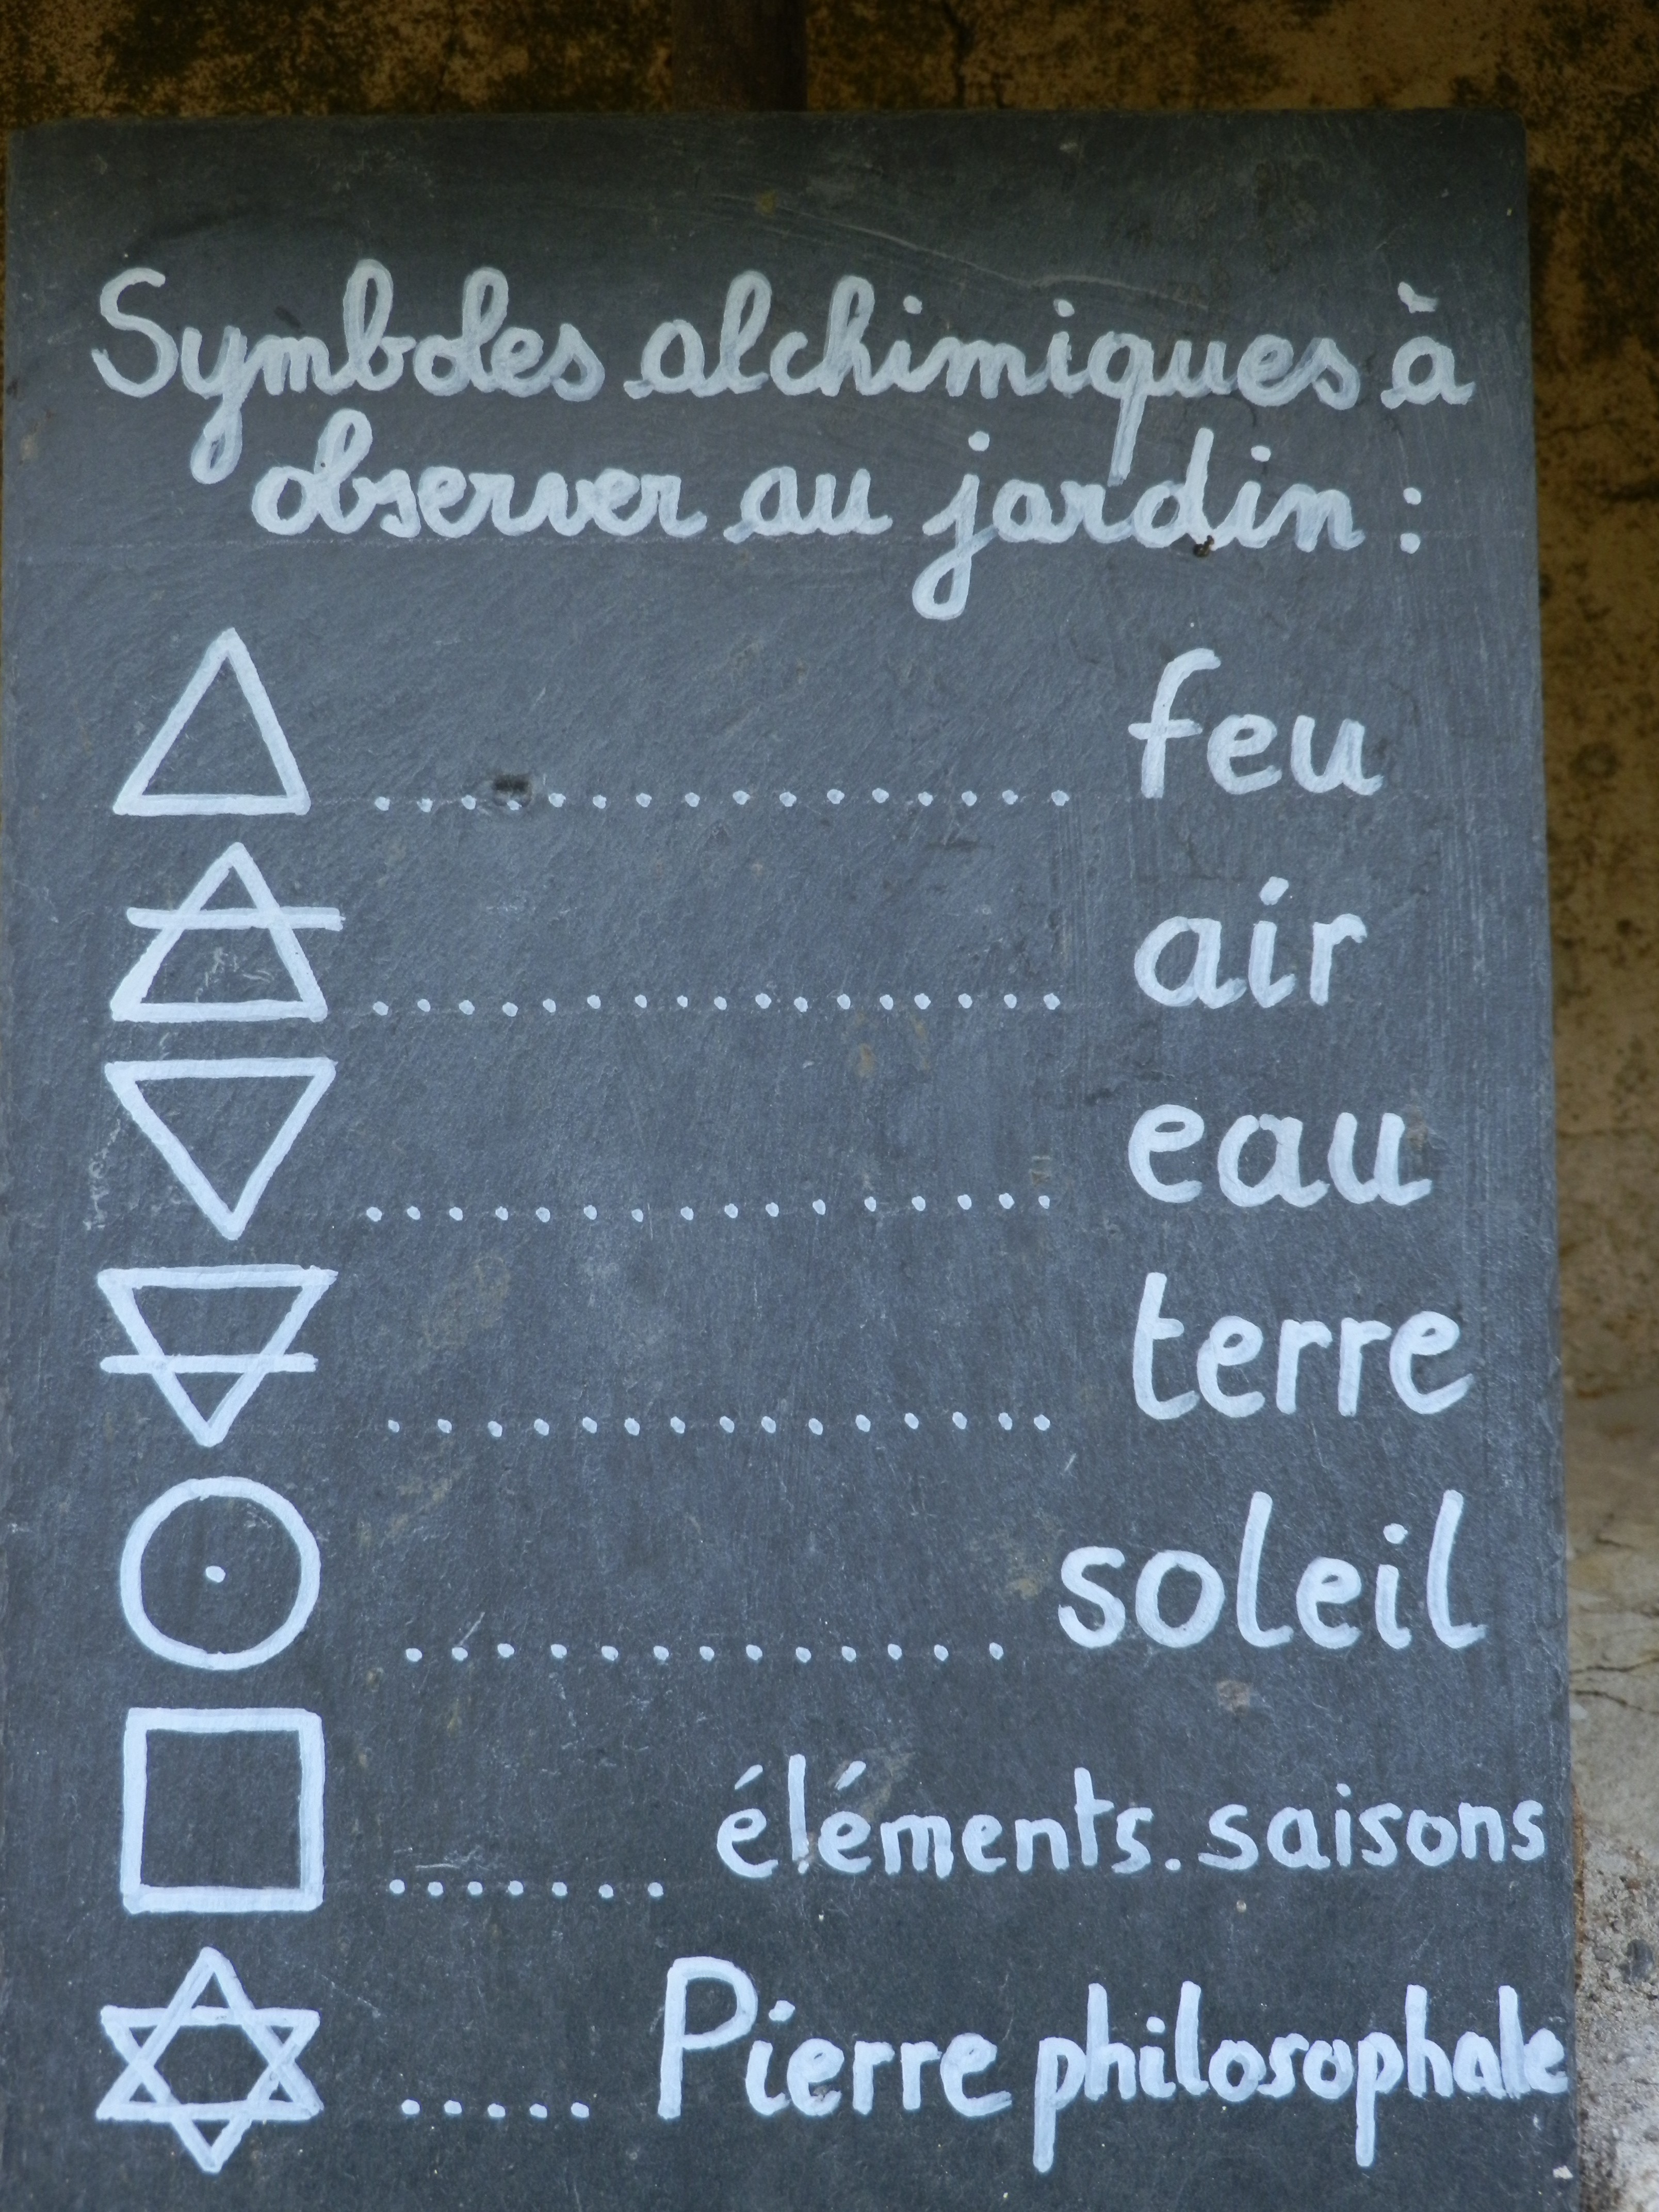 Symboles alchimiques à
observer au jardin :
................ feu
................ air
................ eau
............... terre
.............. soleil
....... éléments. saisons
..... Pierre philosophale